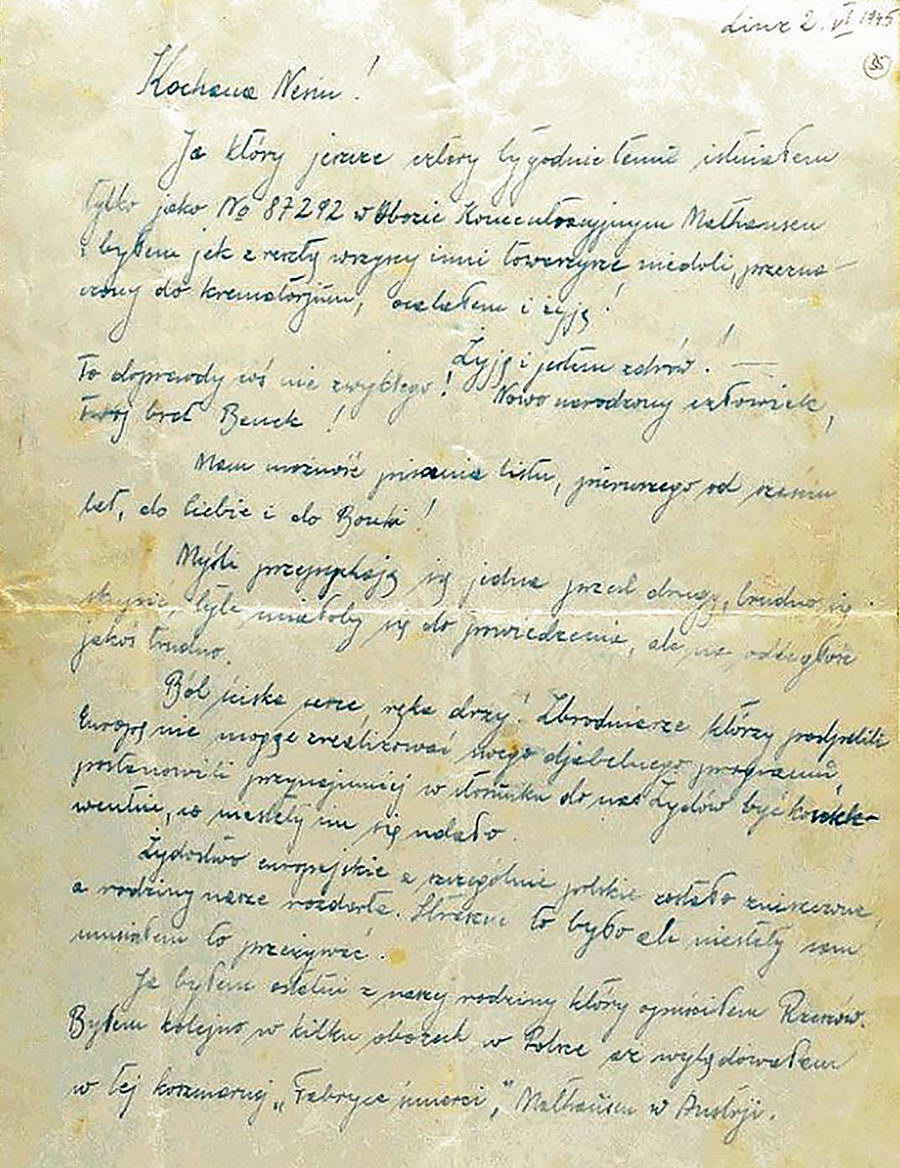 Linz 2. VI 1945
35
Kochana Neniu!
Ja który jeszcze cztery tygodnie temu istniałem
tylko jako No 87292 w Obozie Koncentracyjnym Mathausen
i byłem jak zresztą wszyscy inni towarzysze niedoli, przezna-
czony do krematorjum, ocalałem i żyję!
Żyję i jestem zdrów! —
To doprawdy coś nie zwykłego! Nowo narodzony człowiek,
Twój brat Benek!
Mam możność pisania listu, pierwszego od sześciu
lat, do Ciebie i do Bronki!
Myśli przepychają się jedna przed drugą, trudno się
skupić, tyle miałoby się do powiedzenia, ale na odległość
jakoś trudno.
Ból ściska serce, ręka drży! Zbrodniarze którzy podpalili
Europę nie mogąc zrealizować swego djabelnego programu,
postanowili przynajmniej w stosunku do nas Żydów być konsek-
wentni, co niestety im się udało.
Żydostwo europejskie a szczególnie polskie zostało zniszczone,
a rodziny nasze rozdarte. Straszne to było ale niestety sam
musiałem to przeżywać.
Ja byłem ostatni z naszej rodziny który opuściłem Rzeszów.
Byłem kolejno w kilku obozach w Polsce aż wylądowałem
w tej koszmarnej „Fabryce śmierci," Mathausen w Austrji.